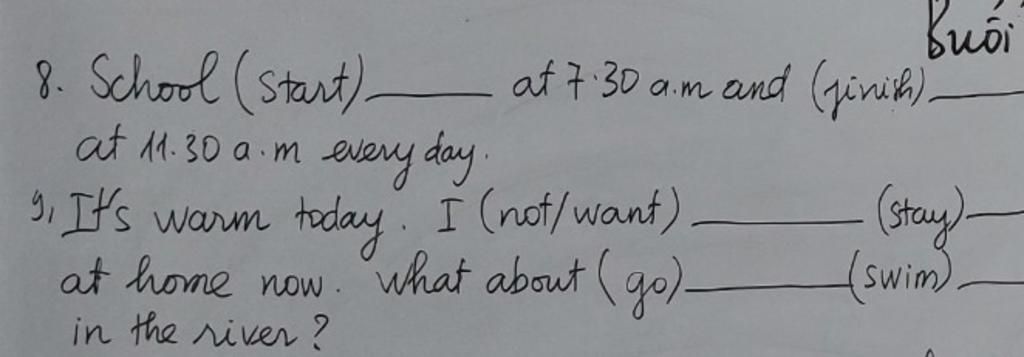 Buối
8. School (start)______ at 7.30 a.m and (finish)______
at 11.30 a.m every day.
9, It's warm today. I (not/want) __________ (stay)____
at home now. What about (go)__________(swim)____
in the river?